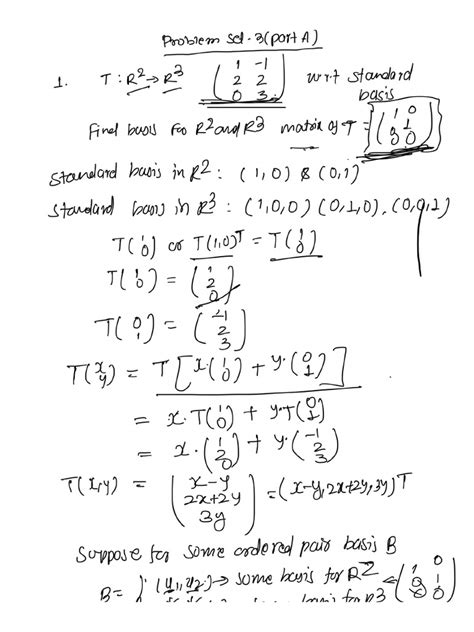 Problem Set-3(part A)
1. T: R² → R³ ( 1 -1 ; 2 2 ; 0 3 ) w.r.t standard basis
Find basis for R² and R³ matrix of T = ( 1 0 ; 0 1 ; 0 0 )
Standard basis in R² : (1,0) & (0,1)
Standard basis in R³ : (1,0,0) (0,1,0), (0,0,1)
T(1 ; 0) or T(1,0)ᵀ = T(1 ; 0)
T(1 ; 0) = ( 1 ; 2 ; 0 )
T(0 ; 1) = ( -1 ; 2 ; 3 )
T(x ; y) = T[x·(1 ; 0) + y·(0 ; 1)]
= x·T(1 ; 0) + y·T(0 ; 1)
= x·( 1 ; 2 ; 0 ) + y·( -1 ; 2 ; 3 )
T(x,y) = ( x-y ; 2x+2y ; 3y ) = (x-y, 2x+2y, 3y)ᵀ
Suppose for some ordered pair basis B
B = (y₁,y₂) → some basis for R² ← ( 1 0 ; 0 1 ; 0 0 )
some basis for R3